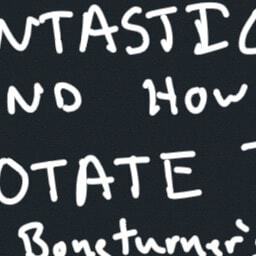 NTASTIC
ND HOW
OTATE T
Boneturner's